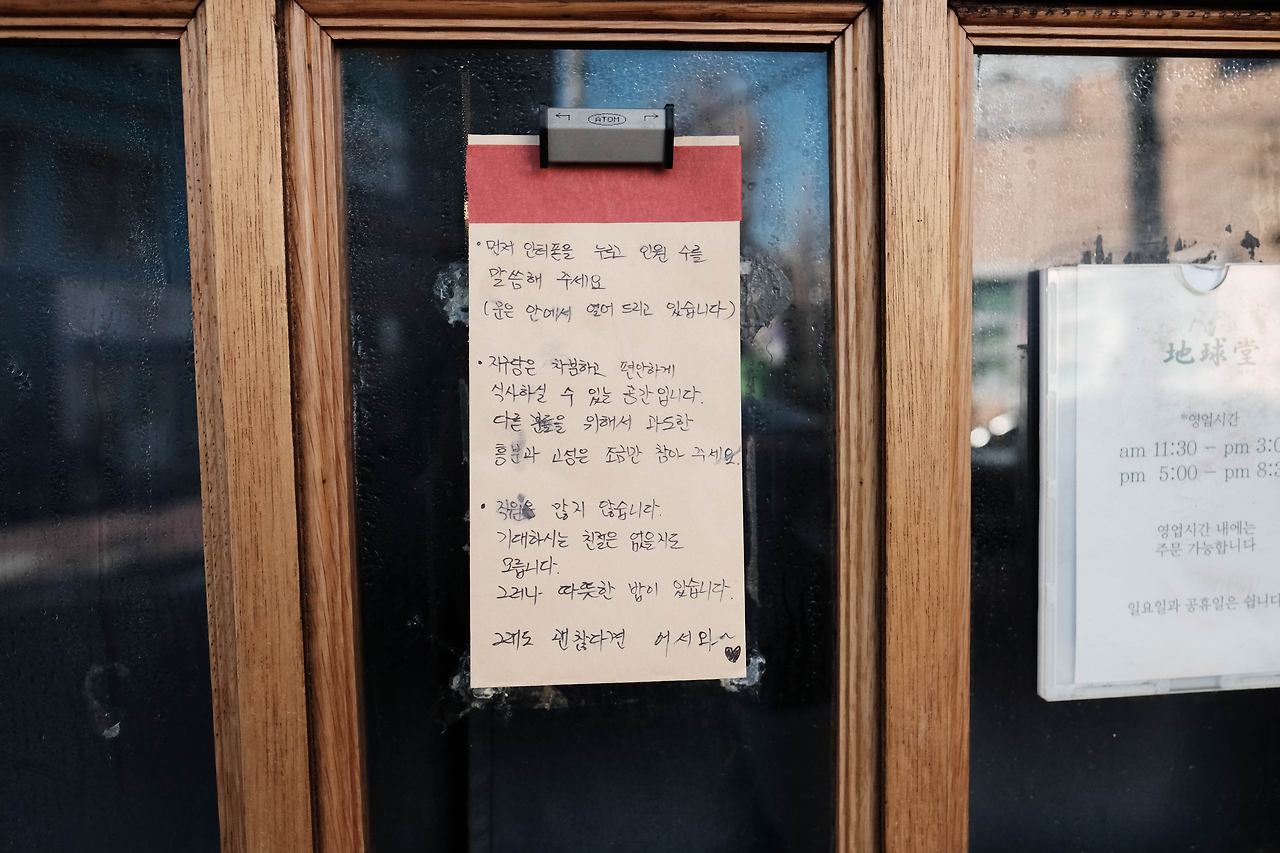 ATOM
• 먼저 인터폰을 누르고 인원 수를
말씀해 주세요
(문은 안에서 열어 드리고 있습니다)
• 지구당은 차분하고 편안하게
식사하실 수 있는 공간입니다.
다른 분들을 위해서 과도한
흥분과 고성은 조금만 참아 주세요.
• 직원은 많지 않습니다.
기대하시는 친절은 없을지도
모릅니다.
그러나 따뜻한 밥이 있습니다.
그래도 괜찮다면 어서와~♥
地球堂
*영업시간
am 11:30 - pm 3:0
pm 5:00 - pm 8:3
영업시간 내에는
주문 가능합니다
일요일과 공휴일은 쉽니다